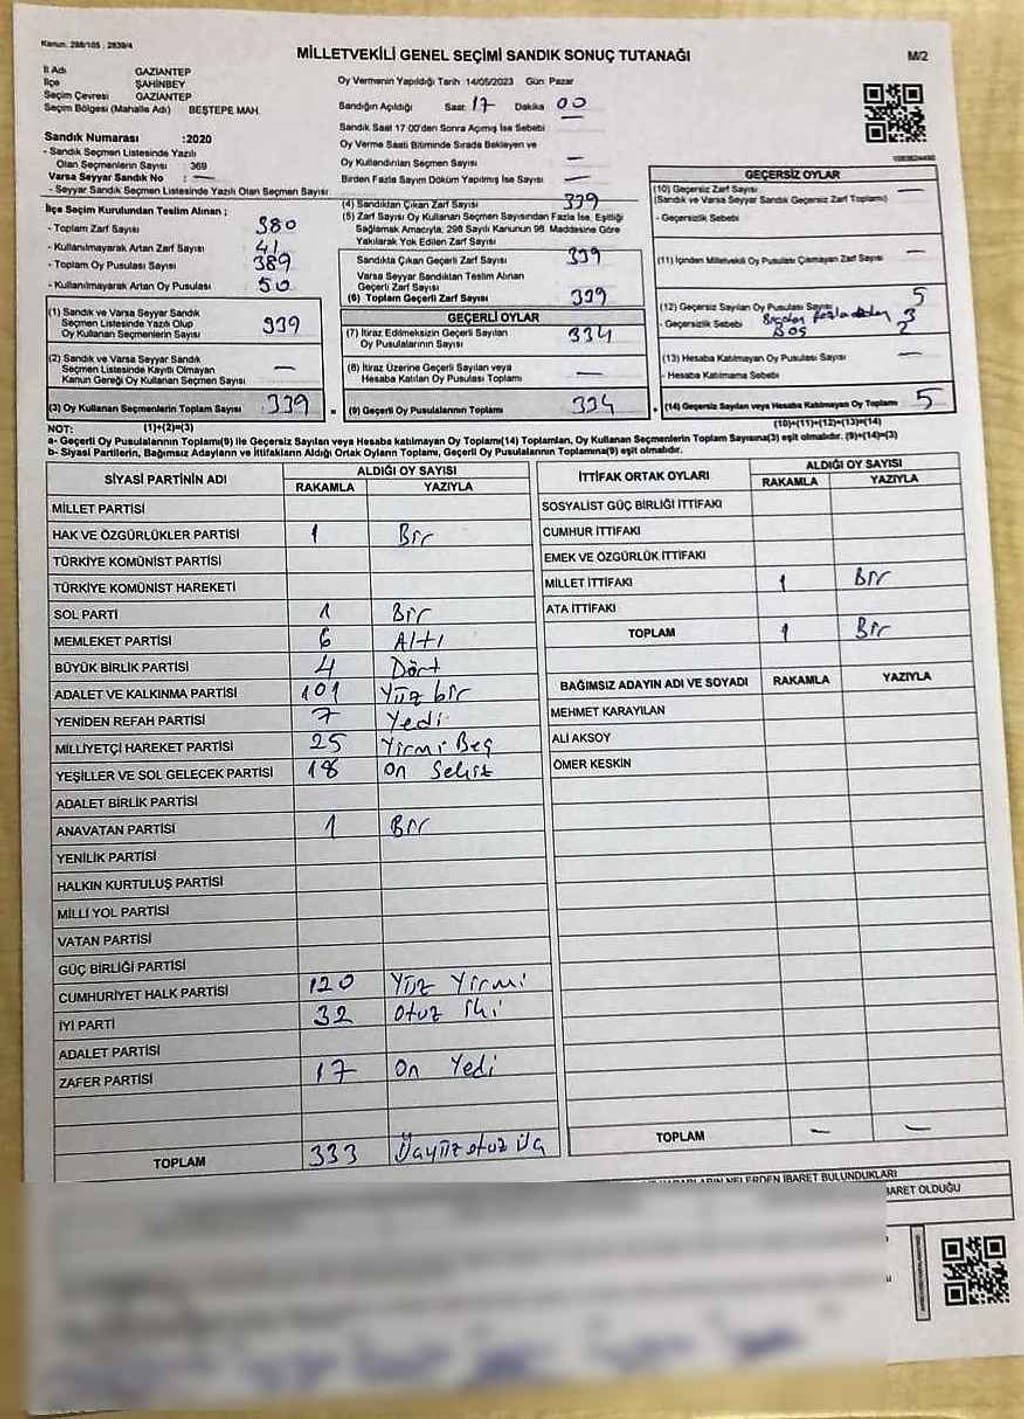 Kanun: 298/105 ; 2839/4
MİLLETVEKİLİ GENEL SEÇİMİ SANDIK SONUÇ TUTANAĞI
M/2
İl Adı GAZİANTEP
İlçe ŞAHİNBEY
Seçim Çevresi GAZİANTEP
Seçim Bölgesi (Mahalle Adı) BEŞTEPE MAH.
Sandık Numarası :2020
- Sandık Seçmen Listesinde Yazılı
Olan Seçmenlerin Sayısı : 369
Varsa Seyyar Sandık No : —
- Seyyar Sandık Seçmen Listesinde Yazılı Olan Seçmen Sayısı:
Oy Vermenin Yapıldığı Tarih :14/05/2023 Gün: Pazar
Sandığın Açıldığı Saat: 17 Dakika 00
Sandık Saat 17:00'den Sonra Açılmış İse Sebebi
Oy Verme Saati Bitiminde Sırada Bekleyen ve
Oy Kullandırılan Seçmen Sayısı —
Birden Fazla Sayım Döküm Yapılmış İse Sayısı —
İlçe Seçim Kurulundan Teslim Alınan ;
- Toplam Zarf Sayısı 380
- Kullanılmayarak Artan Zarf Sayısı 41
- Toplam Oy Pusulası Sayısı 389
- Kullanılmayarak Artan Oy Pusulası 50
(1) Sandık ve Varsa Seyyar Sandık
Seçmen Listesinde Yazılı Olup
Oy Kullanan Seçmenlerin Sayısı 339
(2) Sandık ve Varsa Seyyar Sandık
Seçmen Listesinde Kayıtlı Olmayan
Kanun Gereği Oy Kullanan Seçmen Sayısı —
(3) Oy Kullanan Seçmenlerin Toplam Sayısı 339
(4) Sandıktan Çıkan Zarf Sayısı 339
(5) Zarf Sayısı Oy Kullanan Seçmen Sayısından Fazla İse, Eşitliği
Sağlamak Amacıyla, 298 Sayılı Kanunun 98. Maddesine Göre
Yakılarak Yok Edilen Zarf Sayısı
Sandıkta Çıkan Geçerli Zarf Sayısı 339
Varsa Seyyar Sandıktan Teslim Alınan
Geçerli Zarf Sayısı
(6) Toplam Geçerli Zarf Sayısı 339
GEÇERLİ OYLAR
(7) İtiraz Edilmeksizin Geçerli Sayılan
Oy Pusulalarının Sayısı 334
(8) İtiraz Üzerine Geçerli Sayılan veya
Hesaba Katılan Oy Pusulası Toplamı —
(9) Geçerli Oy Pusulalarının Toplamı 334
GEÇERSİZ OYLAR
(10) Geçersiz Zarf Sayısı —
(Sandık ve Varsa Seyyar Sandık Geçersiz Zarf Toplamı)
- Geçersizlik Sebebi
(11) İçinden Milletvekili Oy Pusulası Çıkmayan Zarf Sayısı —
(12) Geçersiz Sayılan Oy Pusulası Sayısı 5
- Geçersizlik Sebebi 3
Boş 2
(13) Hesaba Katılmayan Oy Pusulası Sayısı —
- Hesaba Katılmama Sebebi
(14) Geçersiz Sayılan veya Hesaba Katılmayan Oy Toplamı 5
NOT: (1)+(2)=(3)
(10)+(11)+(12)+(13)=(14)
a- Geçerli Oy Pusulalarının Toplamı(9) ile Geçersiz Sayılan veya Hesaba katılmayan Oy Toplamı(14) Toplamları, Oy Kullanan Seçmenlerin Toplam Sayısına(3) eşit olmalıdır. (9)+(14)=(3)
b- Siyasi Partilerin, Bağımsız Adayların ve İttifakların Aldığı Ortak Oyların Toplamı, Geçerli Oy Pusulalarının Toplamına(9) eşit olmalıdır.
SİYASİ PARTİNİN ADI ALDIĞI OY SAYISI
RAKAMLA YAZIYLA
MİLLET PARTİSİ
HAK VE ÖZGÜRLÜKLER PARTİSİ 1 Bir
TÜRKİYE KOMÜNİST PARTİSİ
TÜRKİYE KOMÜNİST HAREKETİ
SOL PARTİ 1 Bir
MEMLEKET PARTİSİ 6 Altı
BÜYÜK BİRLİK PARTİSİ 4 Dört
ADALET VE KALKINMA PARTİSİ 101 Yüz bir
YENİDEN REFAH PARTİSİ 7 Yedi
MİLLİYETÇİ HAREKET PARTİSİ 25 Yirmi Beş
YEŞİLLER VE SOL GELECEK PARTİSİ 18 On Sekiz
ADALET BİRLİK PARTİSİ
ANAVATAN PARTİSİ 1 Bir
YENİLİK PARTİSİ
HALKIN KURTULUŞ PARTİSİ
MİLLİ YOL PARTİSİ
VATAN PARTİSİ
GÜÇ BİRLİĞİ PARTİSİ
CUMHURİYET HALK PARTİSİ 120 Yüz Yirmi
İYİ PARTİ 32 Otuz İki
ADALET PARTİSİ
ZAFER PARTİSİ 17 On Yedi
TOPLAM 333 Üçyüz otuz üç
İTTİFAK ORTAK OYLARI ALDIĞI OY SAYISI
RAKAMLA YAZIYLA
SOSYALİST GÜÇ BİRLİĞİ İTTİFAKI
CUMHUR İTTİFAKI
EMEK VE ÖZGÜRLÜK İTTİFAKI
MİLLET İTTİFAKI 1 Bir
ATA İTTİFAKI
TOPLAM 1 Bir
BAĞIMSIZ ADAYIN ADI VE SOYADI RAKAMLA YAZIYLA
MEHMET KARAYILAN
ALİ AKSOY
ÖMER KESKİN
TOPLAM — —
NELERDEN İBARET BULUNDUKLARI
BARET OLDUĞU